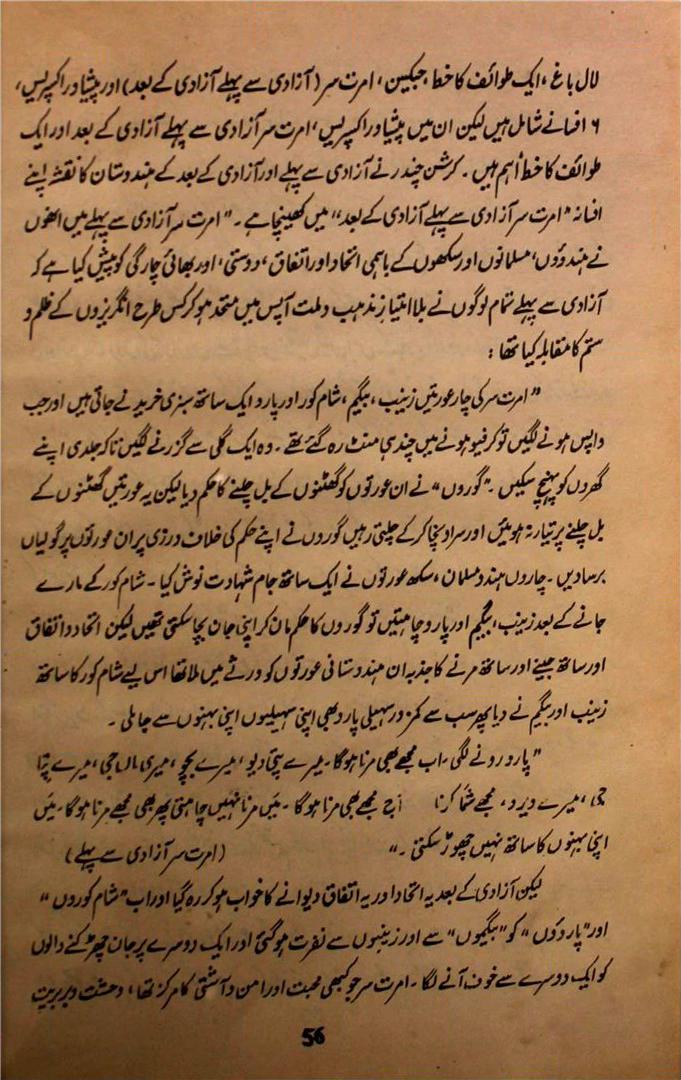 لال باغ، ایک طوائف کا خط، جیکسن، امرت سر (آزادی سے پہلے آزادی کے بعد) اور پیشاور اکسپریس،
۶ افسانے شامل ہیں لیکن ان میں پیشاور اکسپریس، امرت سر آزادی سے پہلے آزادی کے بعد اور ایک
طوائف کا خط اہم ہیں۔ کرشن چندر نے آزادی سے پہلے اور آزادی کے بعد کے ہندوستان کا نقشہ اپنے
افسانہ "امرت سر آزادی سے پہلے آزادی کے بعد" میں کھینچا ہے۔ "امرت سر آزادی سے پہلے میں انھوں
نے ہندوؤں، مسلمانوں اور سکھوں کے باہمی اتحاد اور اتفاق، دوستی، اور بھائی چارگی کو پیش کیا ہے کہ
آزادی سے پہلے تمام لوگوں نے بلا امتیاز مذہب و ملت آپس میں متحد ہو کر کس طرح انگریزوں کے ظلم و
ستم کا مقابلہ کیا تھا:
"امرت سر کی چار عورتیں زینب، بیگم، شام کور اور پارو ایک ساتھ سبزی خریدنے جاتی ہیں اور جب
واپس ہونے لگیں تو کرفیو ہونے میں چند ہی منٹ رہ گئے تھے۔ وہ ایک گلی سے گزرنے لگیں تاکہ جلدی اپنے
گھروں کو پہنچ سکیں۔ "گوروں" نے ان عورتوں کو گھٹنوں کے بل چلنے کا حکم دیا لیکن یہ عورتیں گھٹنوں کے
بل چلنے پر تیار نہ ہوئیں اور سر اونچا کر کے چلتی رہیں گوروں نے اپنے حکم کی خلاف ورزی پر ان عورتوں پر گولیاں
برسا دیں۔ چاروں ہندو مسلمان، سکھ عورتوں نے ایک ساتھ جام شہادت نوش کیا۔ شام کور کے مارے
جانے کے بعد زینب، بیگم اور پارو چاہتیں تو گوروں کا حکم مان کر اپنی جان بچا سکتی تھیں لیکن اتحاد و اتفاق
اور ساتھ جینے اور ساتھ مرنے کا جذبہ ان ہندوستانی عورتوں کو ورثے میں ملا تھا اس لیے شام کور کا ساتھ
زینب اور بیگم نے دیا پھر سب سے کمزور سہیلی پارو بھی اپنی سہیلیوں اپنی بہنوں سے جا ملی۔
"پارو رونے لگی۔ اب مجھے بھی مرنا ہو گا۔ میرے پتی دیو، میرے بچو، میری ماں جی، میرے پتا
جی، میرے ویرو، مجھے شما کرنا آج مجھے بھی مرنا ہو گا۔ میں مرنا نہیں چاہتی پھر بھی مجھے مرنا ہو گا۔ میں
اپنی بہنوں کا ساتھ نہیں چھوڑ سکتی۔" (امرت سر آزادی سے پہلے)
لیکن آزادی کے بعد یہ اتحاد اور یہ اتفاق دیوانے کا خواب ہو کر رہ گیا اور اب "شام کوروں"
اور "پاروؤں" کو "بیگموں" سے اور زینبوں سے نفرت ہو گئی اور ایک دوسرے پر جان چھڑکنے والوں
کو ایک دوسرے سے خوف آنے لگا۔ امرت سر جو کبھی محبت اور امن و آشتی کا مرکز تھا، وحشت و بربریت
56